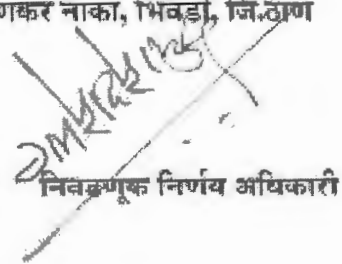 णकर नाका, भिवंडी, जि.ठाणे
निवडणूक निर्णय अधिकारी